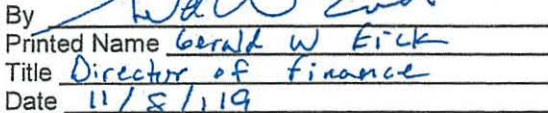 By
Printed Name Gerald W Eick
Title Director of Finance
Date 11/8/119